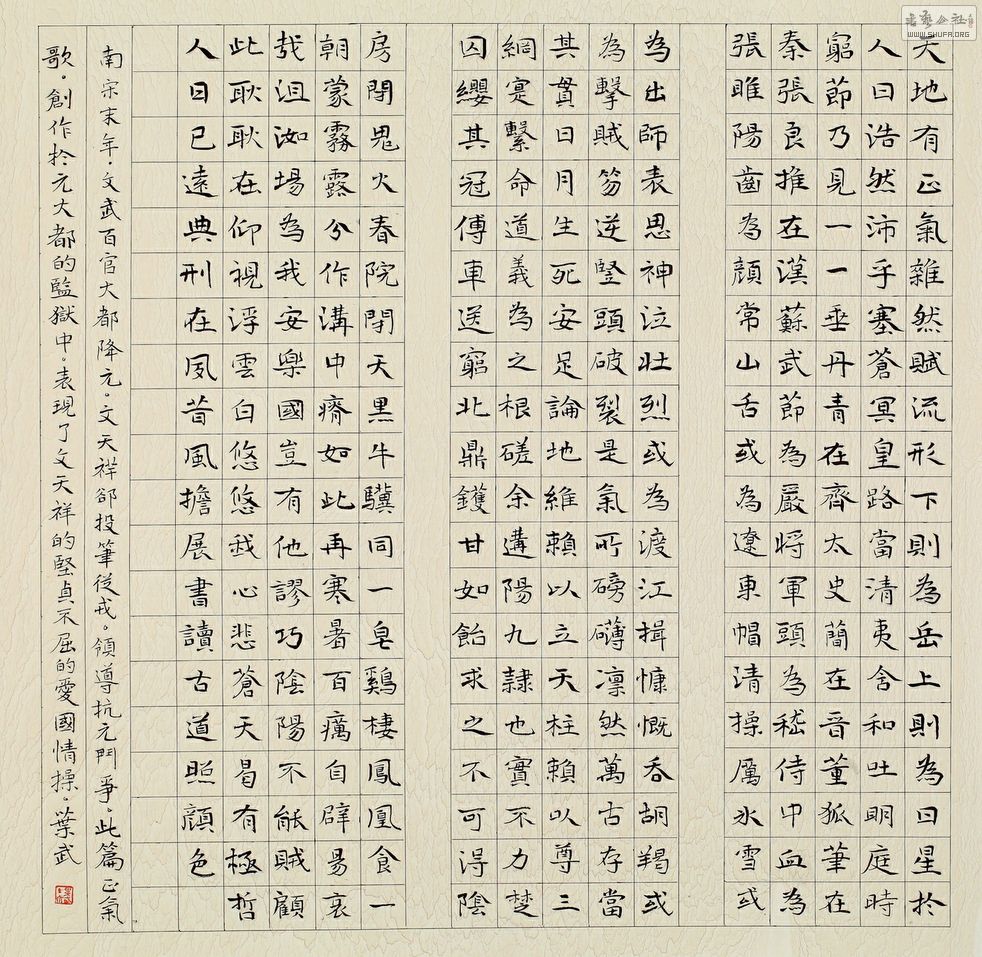 天地有正氣雜然賦流形下則為岳上則為日星於
人曰浩然沛乎塞蒼冥皇路當清夷含和吐明庭時
窮節乃見一一垂丹青在齊太史簡在晉董狐筆在
秦張良推在漢蘇武節為嚴將軍頭為嵇侍中血為
張睢陽齒為顏常山舌或為遼東帽清操厲冰雪或
為出師表鬼神泣壯烈或為渡江揖慷慨吞胡羯或
為擊賊笏逆豎頭破裂是氣所磅礴凛然萬古存當
其貫日月生死安足論地維賴以立天柱賴以尊三
綱寔繫命道義為之根磋余遘陽九隸也實不力楚
囚纓其冠傅車送窮北鼎鑊甘如飴求之不可得陰
房閴鬼火春院閉天黑牛驥同一皂鷄棲鳳凰食一
朝蒙霧露分作溝中瘠如此再寒暑百癘自辟易哀
哉沮洳場為我安樂國豈有他謬巧陰陽不能賊顧
此耿耿在仰視浮雲白悠悠我心悲蒼天曷有極哲
人日已遠典刑在夙昔風擔展書讀古道照顏色
南宋末年。文武百官大都降元。文天祥卻投筆從戎。領導抗元鬥爭。此篇正氣
歌。創作於元大都的監獄中。表現了文天祥的堅貞不屈的愛國情操。葉武
書藝公社
WWW.SHUFA.ORG